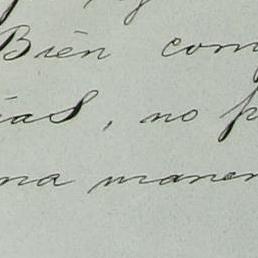 Bien com
ias, no p
na maner